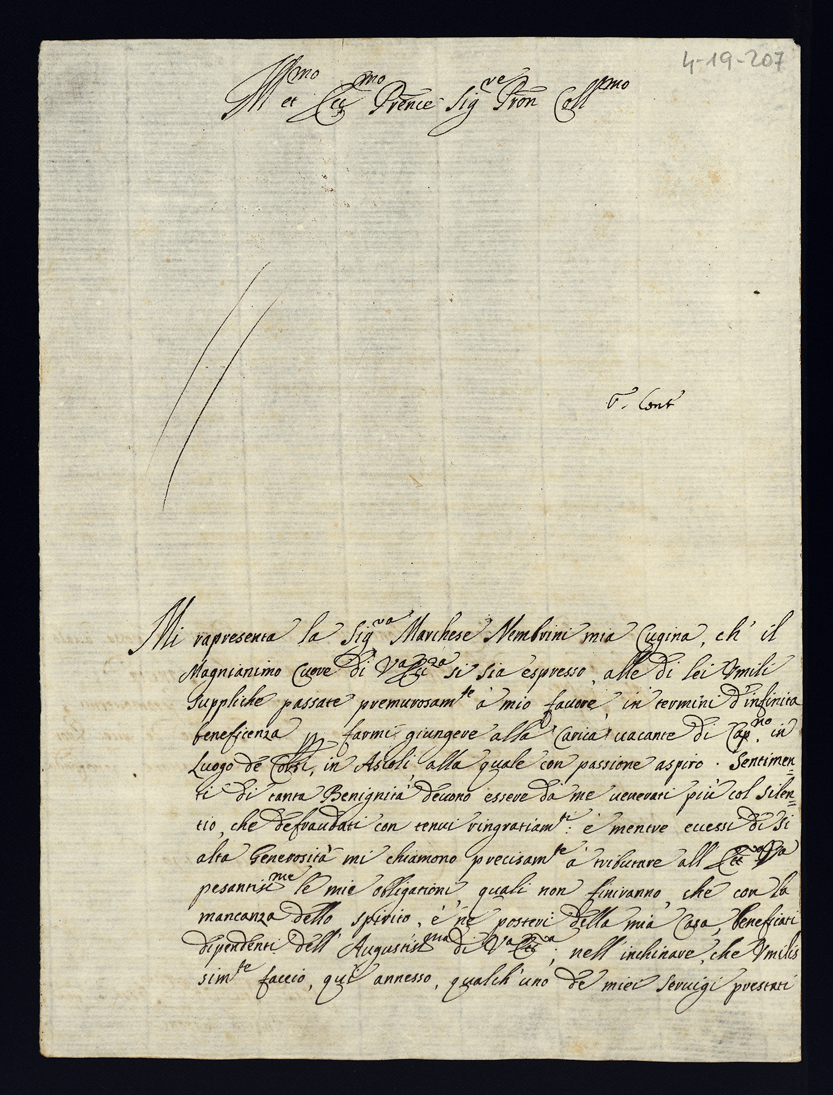 4-19-207
Ill^mo et Ecc^mo Prence Sig^re Pron Coll^mo
Mi rapresenta la Sig^ra Marchese Nembrini mia Cugina, ch' il
Magnianimo Cuore di V^a Ecc^za si sia espresso, alle di lei Vmili
Suppliche passate premurosam^te à mio favore, in termini d'infinita
beneficenza farmi giungere alla Carica vacante di Cap^no in
Luogo de Corsi, in Ascoli alla quale con passione aspiro. Sentimen=
ti di tanta Benignità devono essere da me venerati più col Silen=
tio, che defraudati con tenui ringratiam^ti: e mentre eccessi di si
alta Generosità mi chiamono precisam^te a tributare all' Ecc^za V^ra
pesantiss^me le mie obligationi quali non finiranno che con la
mancanza dello spirito, e nè posteri della mia Casa, beneficati
dipendenti dell' Augustiss^ma di V^a Ecc^za; nell' inchinare, che Vmilis
sim^te faccio, quì annesso, qualch' uno de miei Servigi prestati